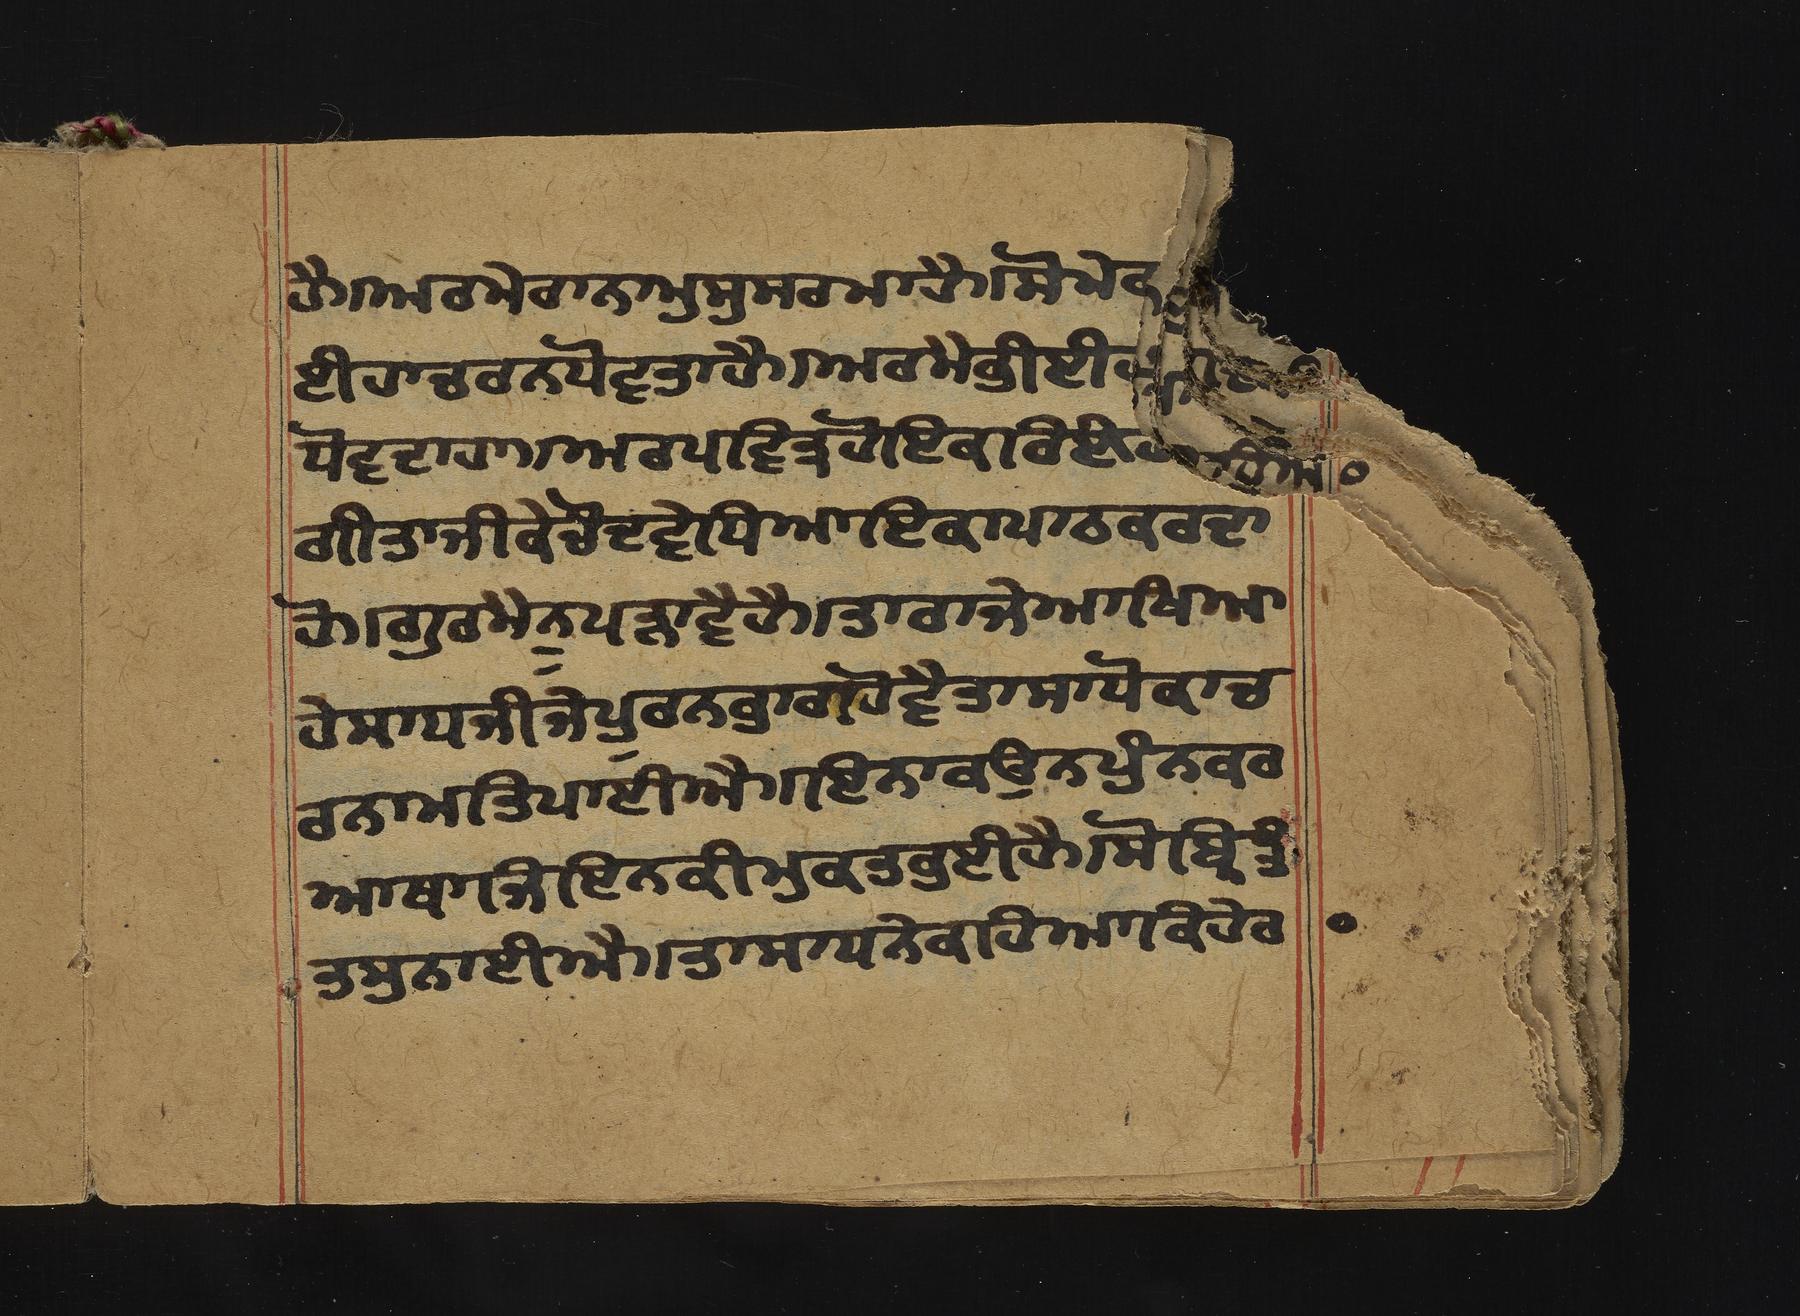 ਹੈ।ਅਰਮੇਰਾਨਾਮੁਸੁਸਰਮਾਹੈ।ਸੋਮੇਰ
ਈਹਾਚਰਨਧੋਵ੍ਤਾਹੈ।ਅਰਮੈਭੀਈ
ਧੋਵ੍ਦਾਹਾ।ਅਰਪਵਿਤ੍ਰਹੋਇਕਰਿਈ
ਗੀਤਾਜੀਕੇਚੌਦਵ੍ਰੇਧਿਆਇਕਾਪਾਠਕਰਦਾ
ਹੋ।ਗੁਰਮੈਨੂਪੜ੍ਹਾਵ੍ੈਹੈ।ਤਾਰਾਜੇਆਖਿਆ
ਹੇਸਾਧਜੀਜੇਪੂਰਨਭਾਗਹੋਵ੍ੈਤਾਸਾਧੋਕਾਚ
ਰਨਾਮ੍ਰਿਤਪਾਈਐ।ਇਨਾਕਉਨਪੁੰਨਕਰ
ਆਥਾਜਿਇਨਕੀਮੁਕਤਭੁਈਹੈ।ਸੋਬ੍ਰਿਤੰ
ਤਸੁਨਾਈਐ।ਤਾਸਾਧਨੇਕਹਿਆਕਿਹੇਰ